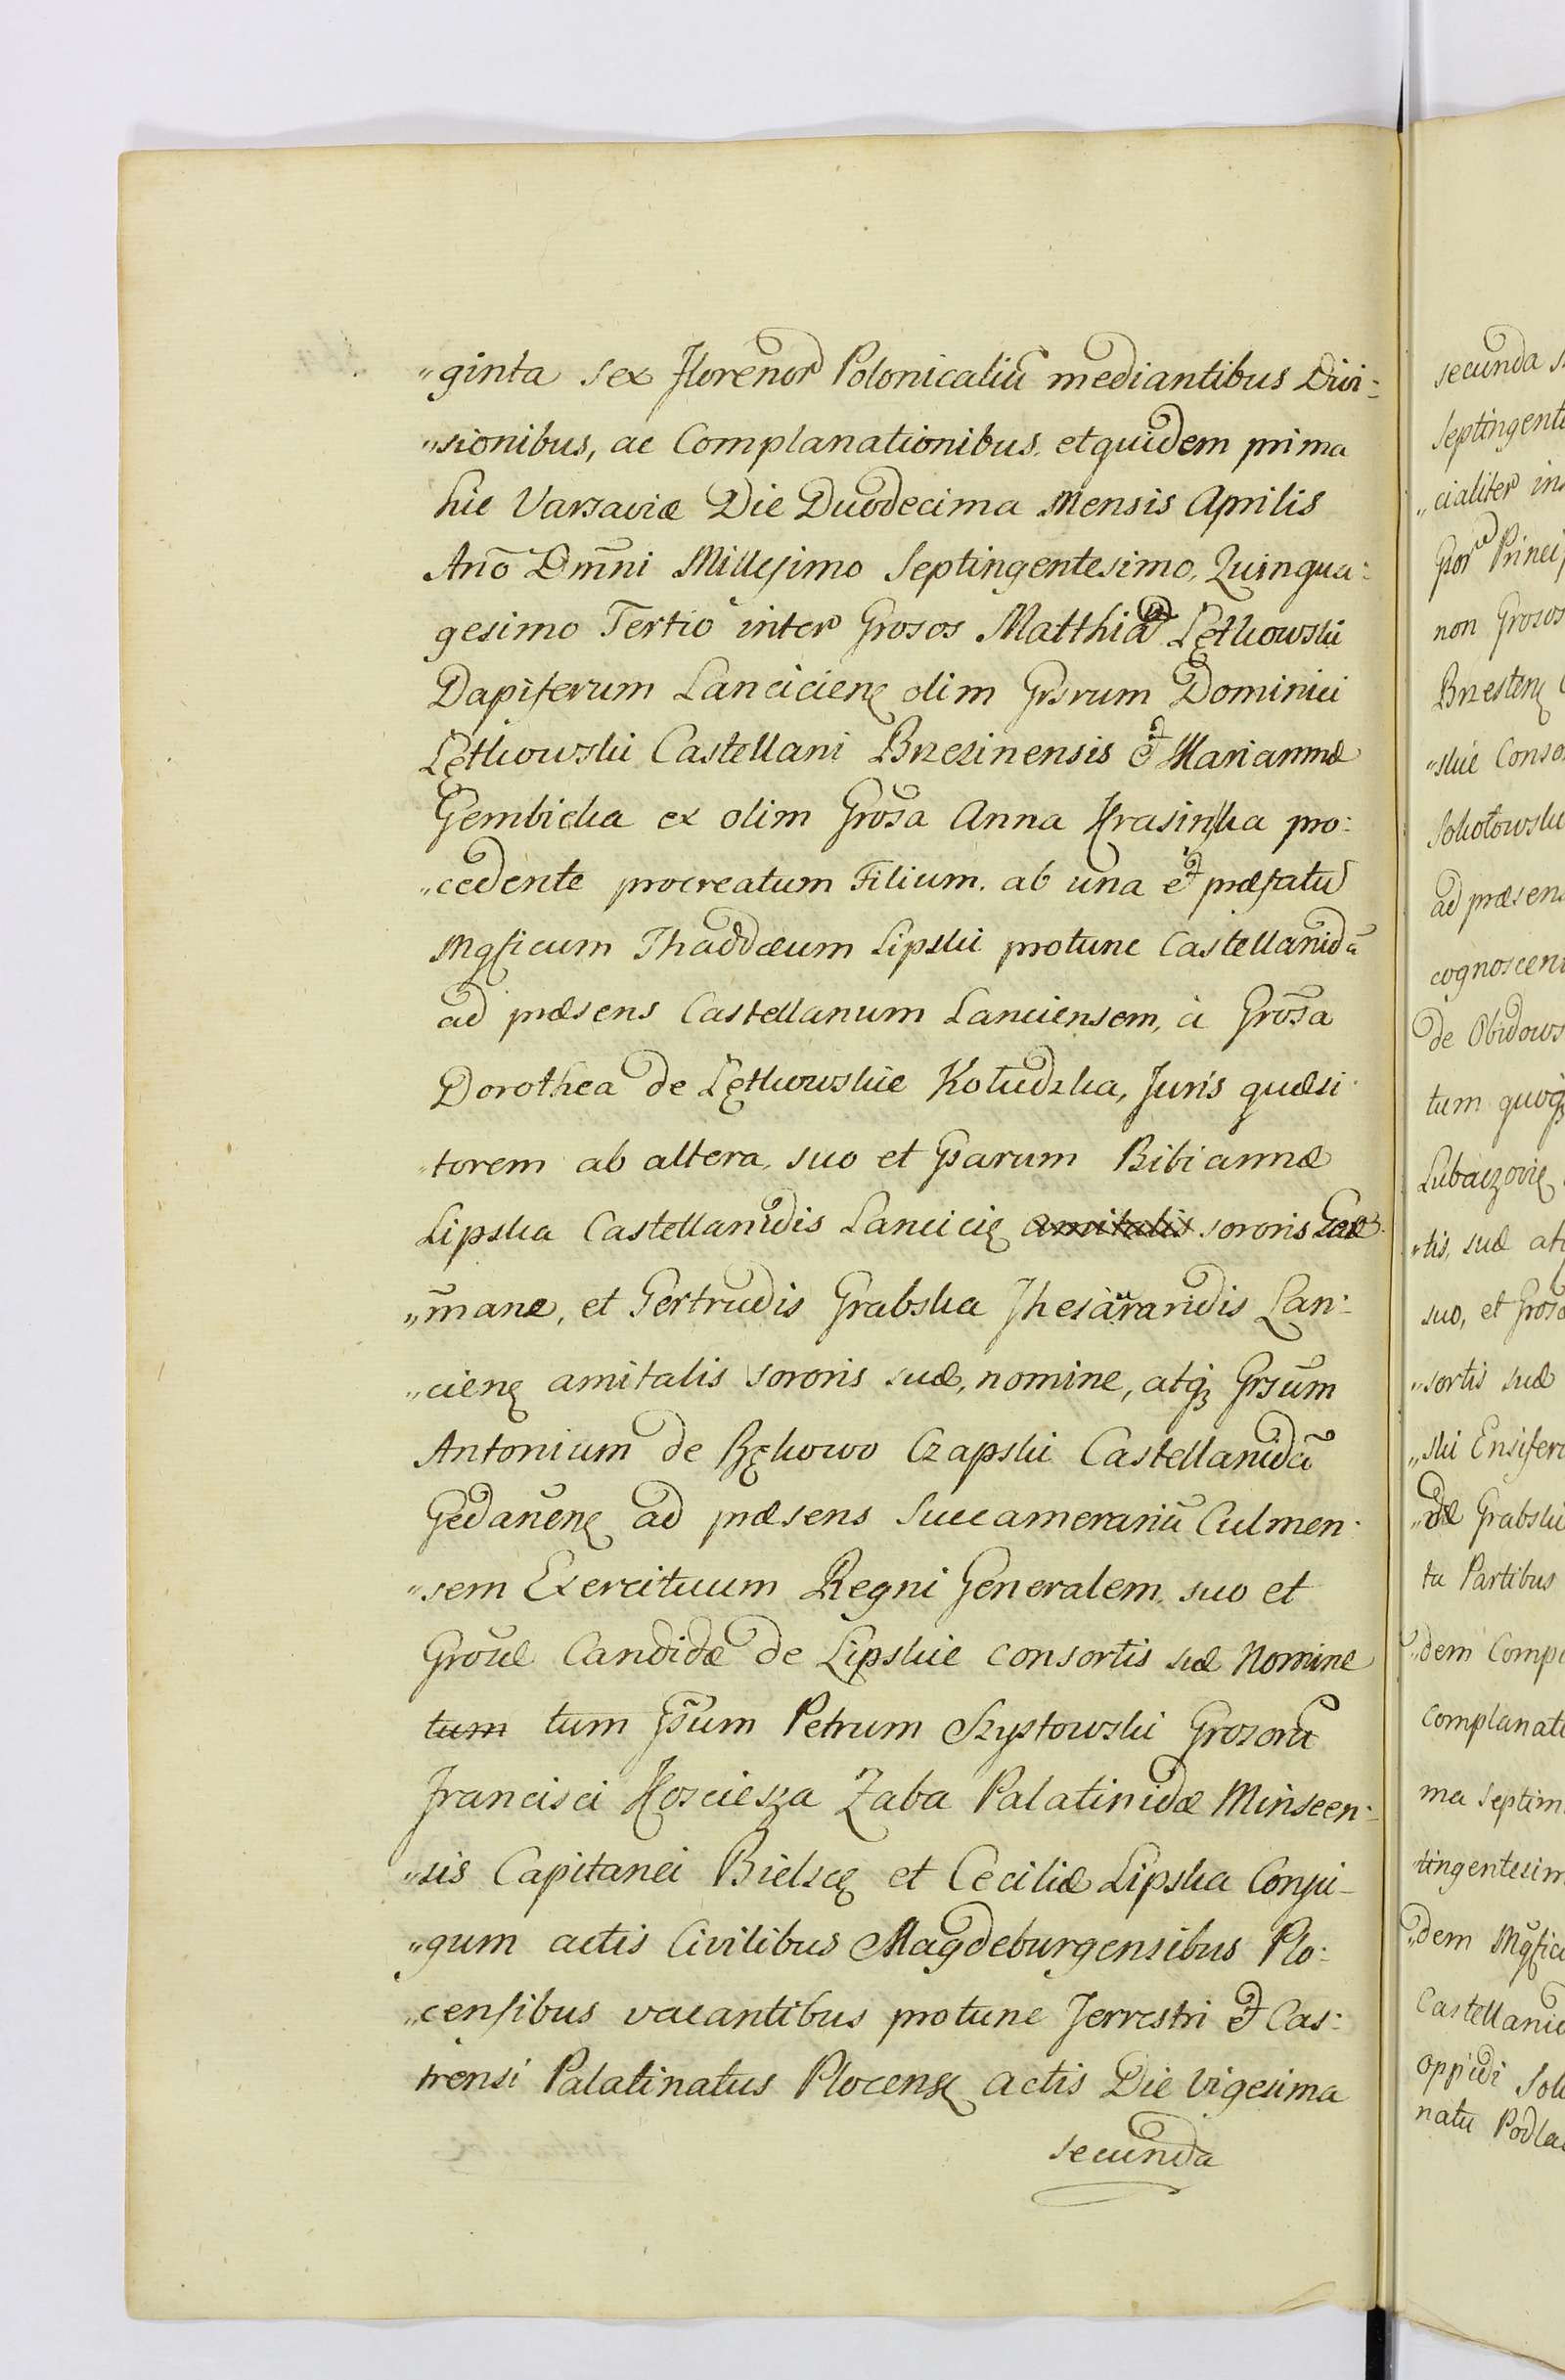 „ginta sex Florenor Polonicaliū mediantibus Divi:
„sionibus, ac Complanationibus. et quidem prima
hic Varsaviæ Die Duodecima Mensis Aprilis
Anō Dm̄ni Millesimo Septingentesimo, Quinqua:
gesimo Tertio inter Grosos Matthia Łętkowski
Dapiferum Lancicienę olim Grsrum Dominici
Łętkowski Castellani Brzezinensis et Mariannæ
Gembicka ex olim Grōsa Anna Krasińska pro:
„cedente procreatum Filium. ab una et præfatū
Mgficum Thaddæum Lipski protunc Castellanidā
ad præsens Castellanum Lanciensem, à Grōsa
Dorothea de Łętkowskie Kołudzka, Juris quæsi
„torem ab altera, suo et Gsarum Bibiannæ
Lipska Castellanidis Lancicię ~~amitalis~~ sororis Ger
„m̄anæ, et Gertrudis Grabska Thesauraridis Lan:
„cienę amitalis sororis suæ, nomine, atqȝ Grsūm
Antonium de Bękowo Czapski Castellanidā
Gedanenę ad præsens Succamerariū Culmen:
„sem Exercituum Regni Generalem, suo et
Grosæ Candidæ de Lipskie consortis suæ Nomine
~~tum~~ tum Gs̄um Petrum Szystowski Grosorū
Francisci Kosciesza Zaba Palatinidæ Minscen:
„sis Capitanei Bielscę et Ceciliæ Lipska Conju-
„gum actis Civilibus Magdeburgensibus Plo:
„censibus vacantibus protunc Terrestri et Cas:
trensi Palatinatus Plocensę actis Die Vigesima
secunda
secunda
Septingente
„cialiter in
Princi
non Grosos
Brzestenę
„skie Conso
Sokołowski
ad præsen
cognoscen
de Obidows
tum quoqȝ
Lubaczovię
„tis, suæ at
suo, et Gros
„sortis suæ
„ski Ensifer
„dæ Grabski
tu Partibus
„dem Comp
Complanat
ma Septim
tingentesim
„dem Mgfic
Castellani
oppidi Sok
natu Podla